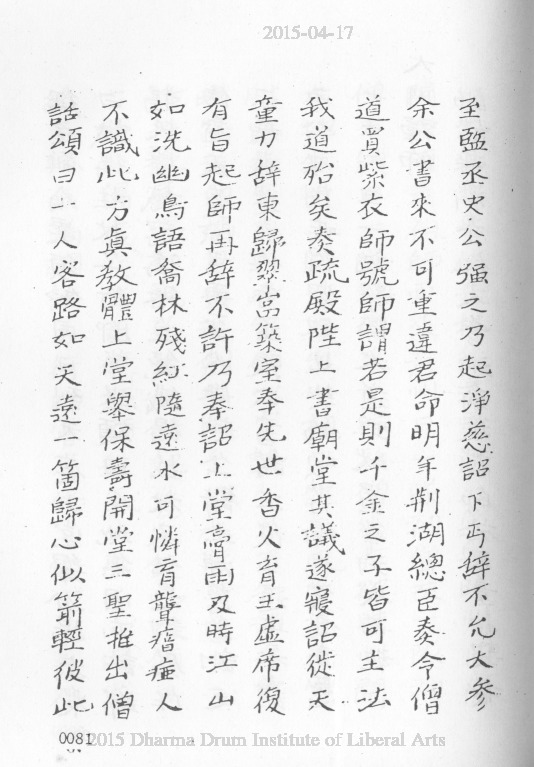 2015-04-17
至監丞史公強之乃起淨慈詔下丐辭不允大參
余公書來不可重違君命明年荆湖總臣奏令僧
道買紫衣師號師謂若是則千金之子皆可主法
我道殆矣奏疏殿陛上書廟堂其議遂寢詔徙天
童力辭東歸翠嵓築室奉先世香火育王虛席復
有旨起師再辭不許乃奉詔上堂膏雨及時江山
如洗幽鳥語喬林殘紅隨遠水可憐盲聾瘖瘂人
不識此方眞教體上堂舉保壽開堂三聖推出僧
話頌曰一人客路如天遠一箇歸心似箭輕彼此
0081
2015 Dharma Drum Institute of Liberal Arts